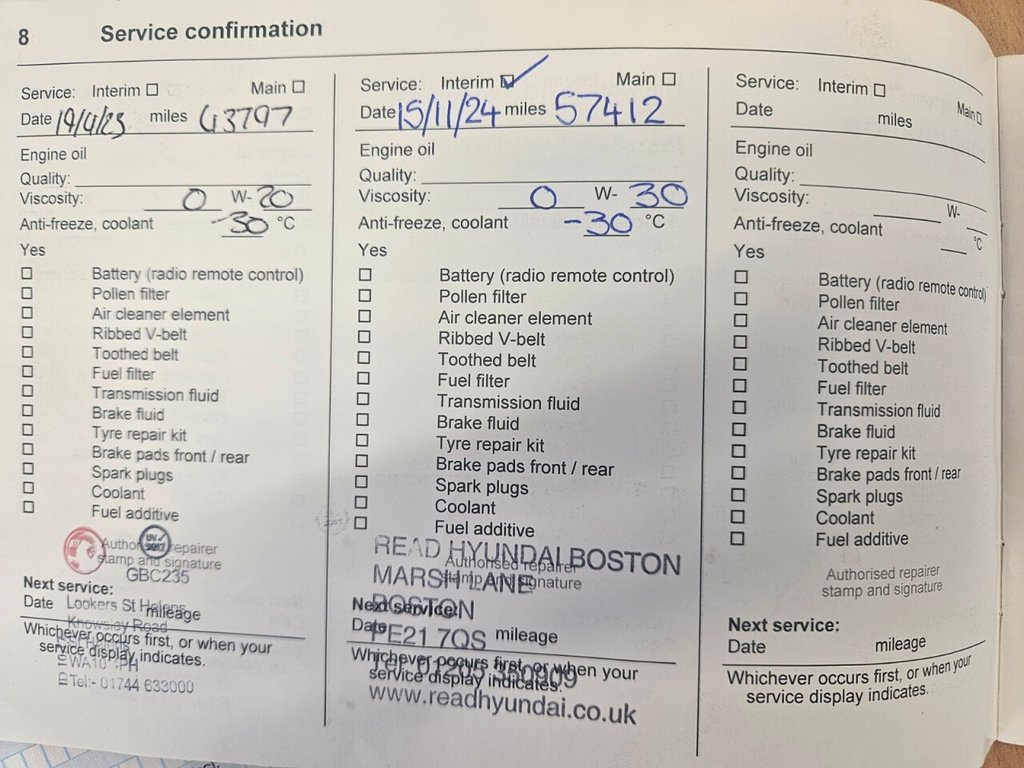 8 Service confirmation
Service: Interim Main
Date 19/4/23 miles 43797
Engine oil
Quality:
Viscosity: 0 W- 20
Anti-freeze, coolant -30 °C
Yes
Battery (radio remote control)
Pollen filter
Air cleaner element
Ribbed V-belt
Toothed belt
Fuel filter
Transmission fluid
Brake fluid
Tyre repair kit
Brake pads front / rear
Spark plugs
Coolant
Fuel additive
Authorised repairer
stamp and signature
GBC235
Next service:
Date mileage
Lookers St Helens
Knowsley Road
Whichever occurs first, or when your
service display indicates.
WA10 4PH
Tel:- 01744 633000
Service: Interim Main
Date 15/11/24 miles 57412
Engine oil
Quality:
Viscosity: 0 W- 30
Anti-freeze, coolant -30 °C
Yes
Battery (radio remote control)
Pollen filter
Air cleaner element
Ribbed V-belt
Toothed belt
Fuel filter
Transmission fluid
Brake fluid
Tyre repair kit
Brake pads front / rear
Spark plugs
Coolant
Fuel additive
READ HYUNDAI BOSTON
Authorised repairer
stamp and signature
MARSH LANE
Next service:
BOSTON
Date mileage
PE21 7QS
Whichever occurs first, or when your
service display indicates.
Tel: 01205 350909
www.readhyundai.co.uk
Service: Interim Main
Date miles
Engine oil
Quality:
Viscosity: W-
Anti-freeze, coolant °C
Yes
Battery (radio remote control)
Pollen filter
Air cleaner element
Ribbed V-belt
Toothed belt
Fuel filter
Transmission fluid
Brake fluid
Tyre repair kit
Brake pads front / rear
Spark plugs
Coolant
Fuel additive
Authorised repairer
stamp and signature
Next service:
Date mileage
Whichever occurs first, or when your
service display indicates.